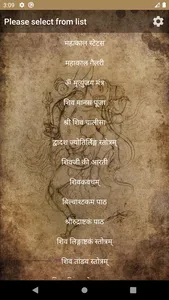 3:09
Please select from list
महाकाल स्टेट्स
महाकाल गैलरी
ॐ मृत्युंजय मंत्र
शिव मानस पूजा
श्री शिव चालीसा
द्वादश ज्योतिर्लिङ्ग स्तोत्रम्
शिवजी की आरती
शिवकवचम्
बिल्वाष्टकम पाठ
श्रीरुद्राष्टकं पाठ
शिव लिङ्गाष्टकं स्तोत्रम्
शिव तांडव स्तोत्रम्